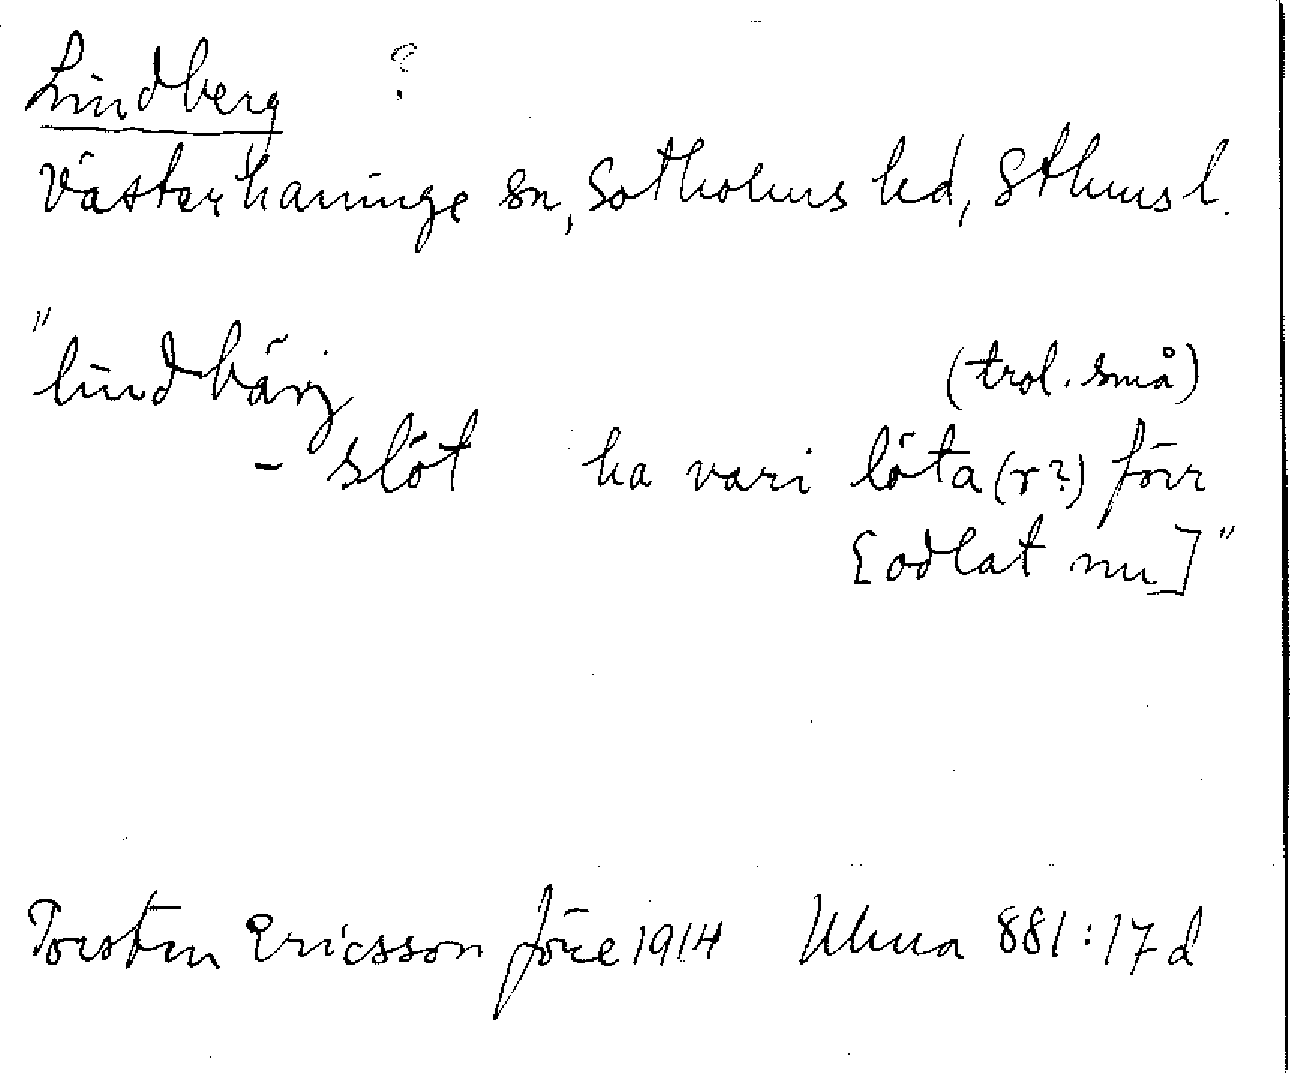 Lindberg ?
Västerhaninge sn, Sotholms hd, Sthms l.
"lindbärj
(trol. små)
- slöt ha vari löta (r?) förr
[odlat nu]"
Torsten Ericsson före 1914 Ulma 881:17 d